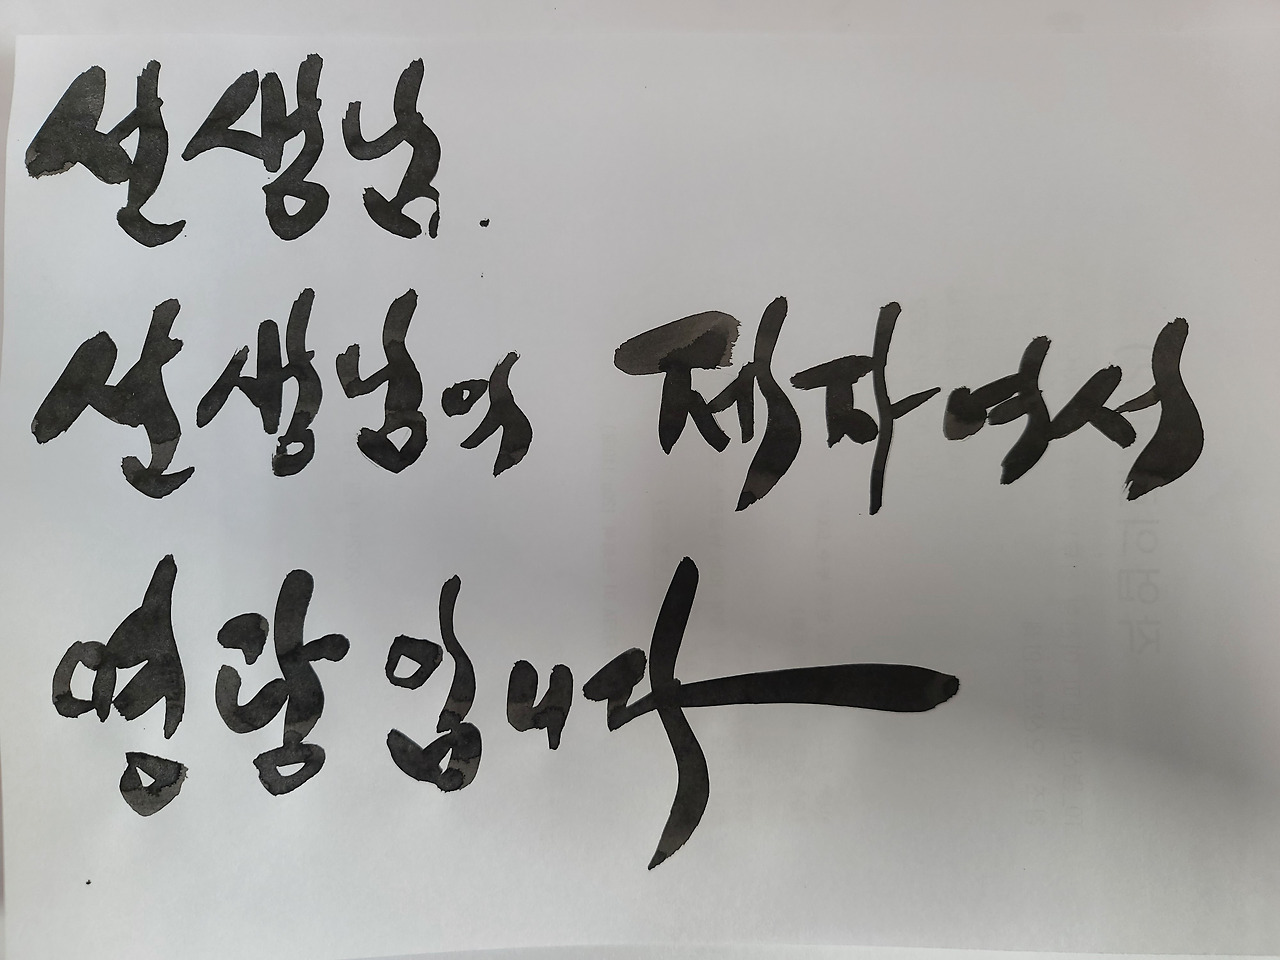 선생님.
선생님의 제자여서
영광입니다